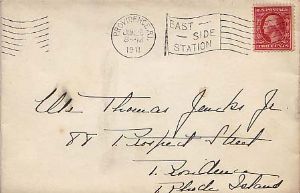 PROVIDENCE, R.I.
1911
EAST
SIDE
STATION
U.S. POSTAGE
TWO CENTS
Thomas Jencks Jr.
88 Prospect Street
Providence
Rhode Island